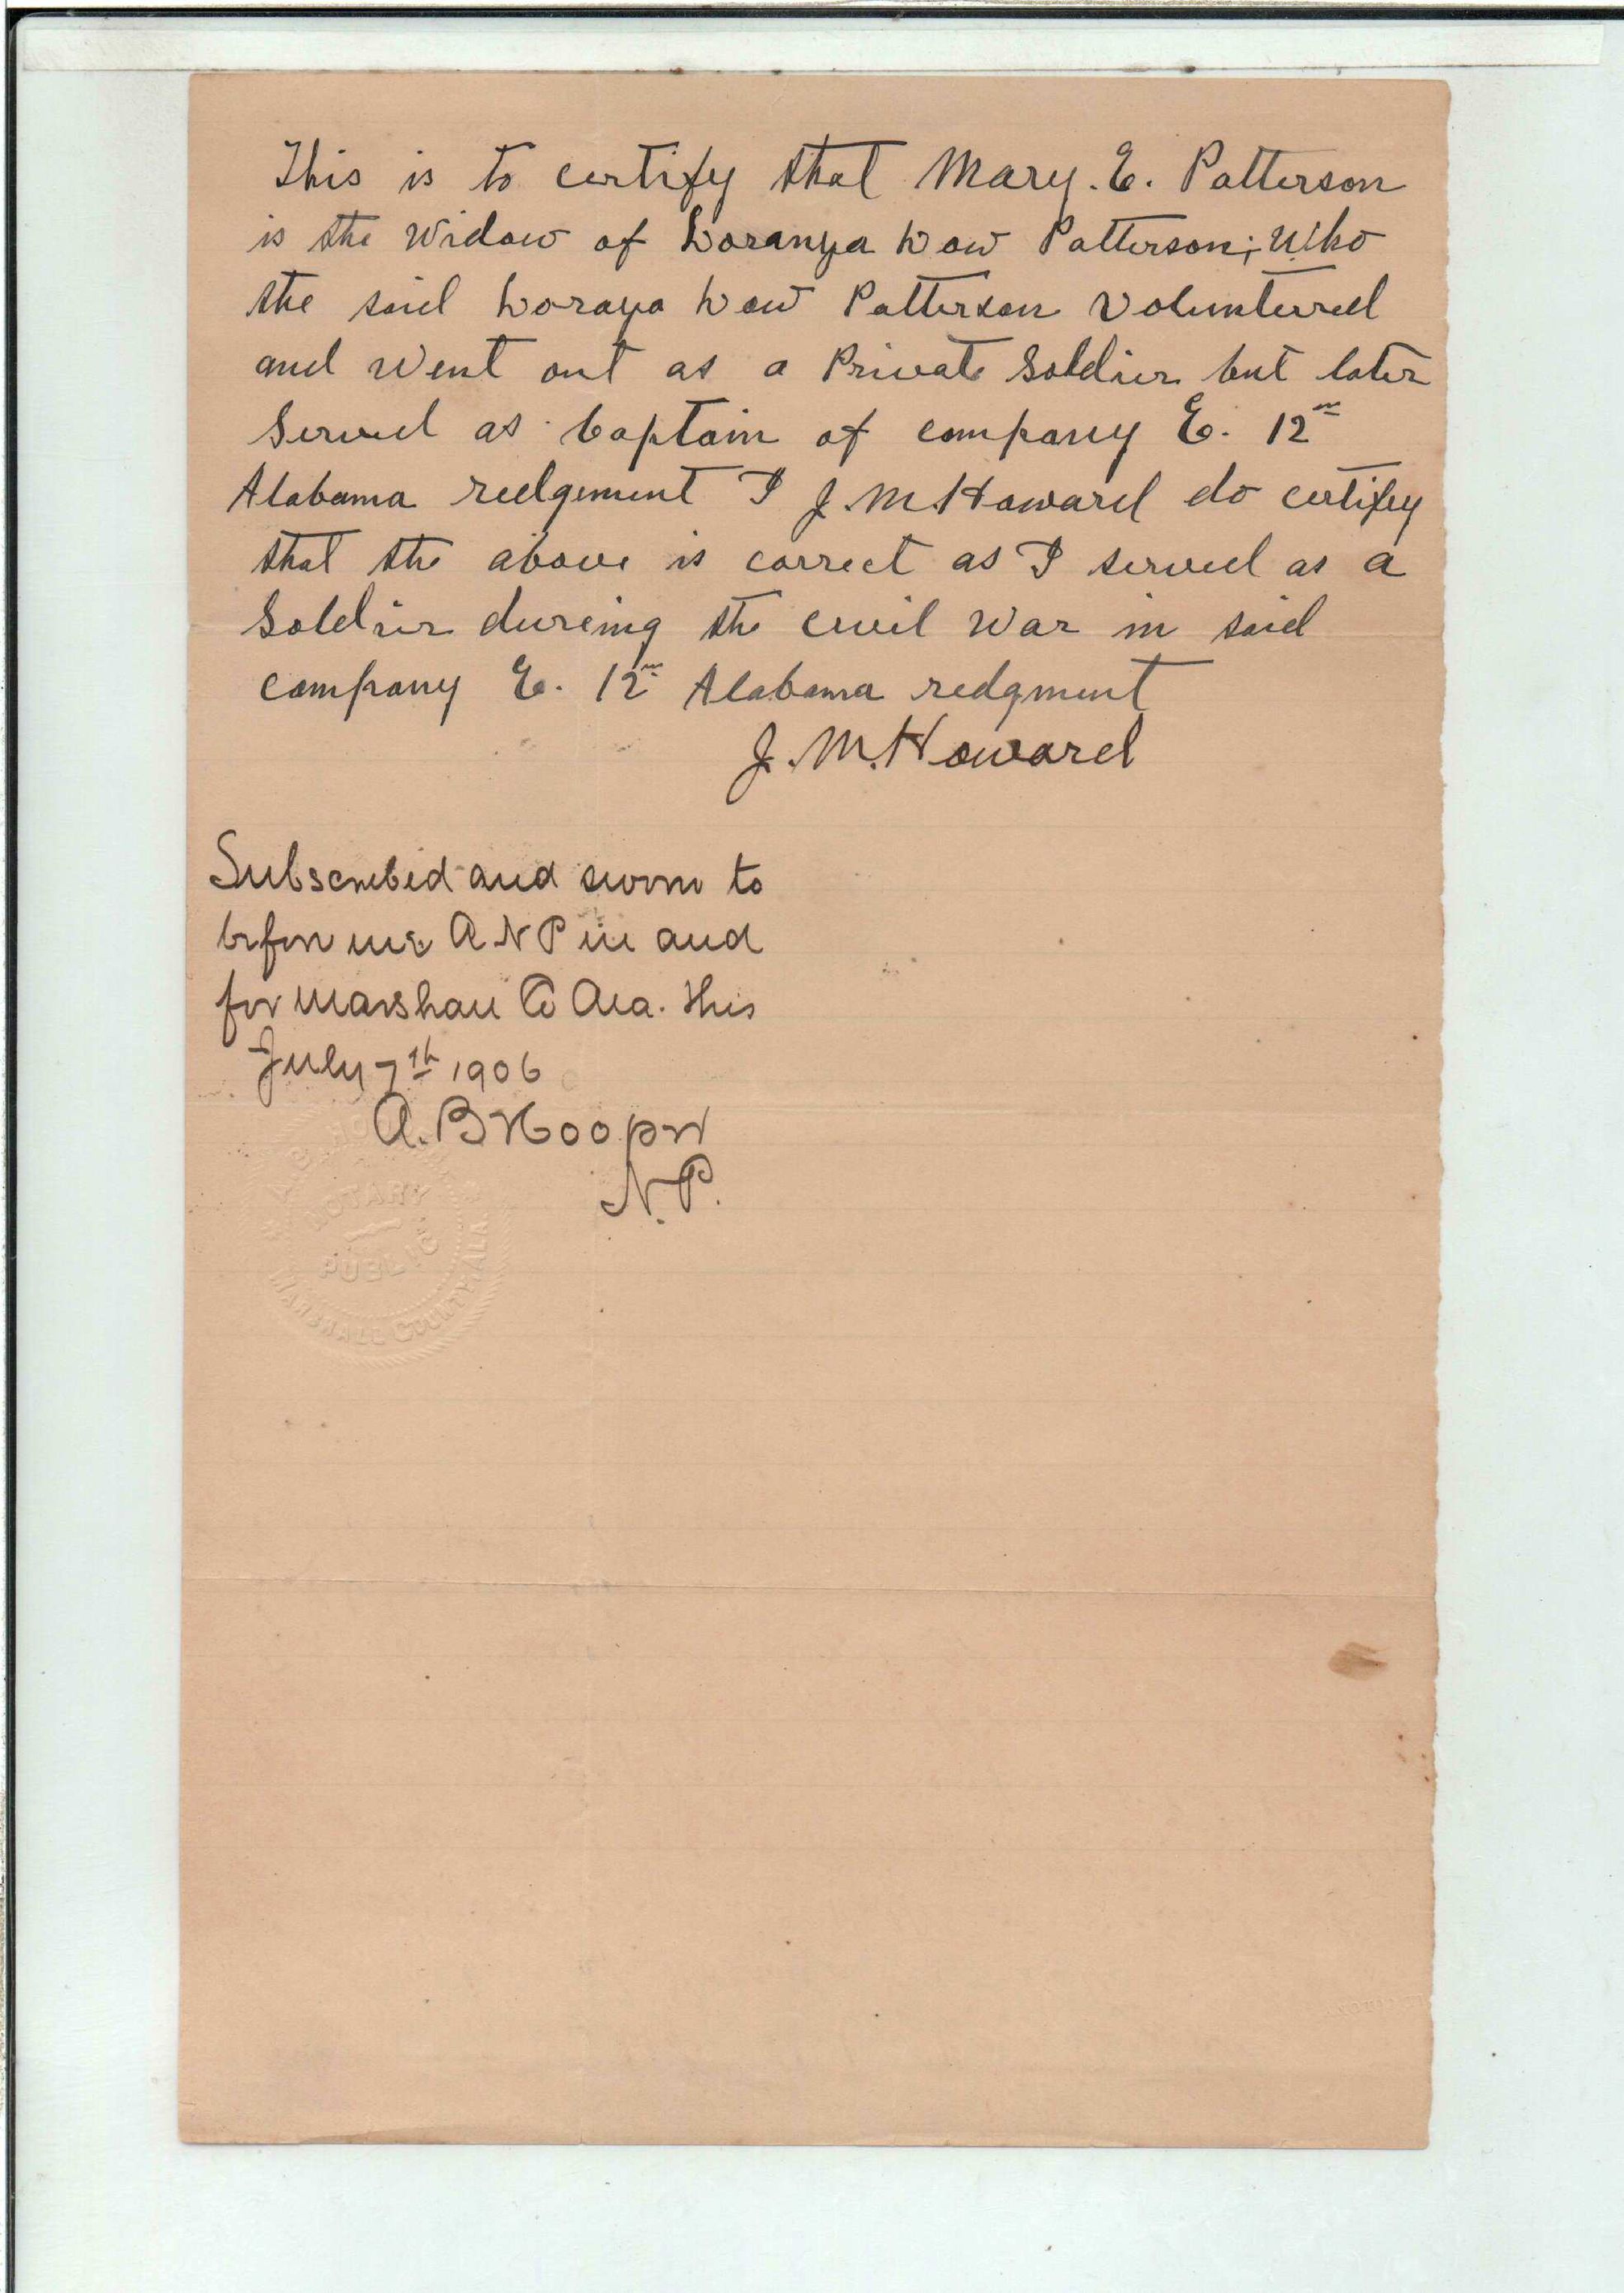 This is to certify that Mary. E. Patterson
is the Widow of Loranya Dow Patterson; Who
the said Loraya Dow Patterson Volunteered
and Went out as a Private Soldier but later
Served as Captain of company E. 12
Alabama redgement I J. M. Howard do certifey
that the above is correct as I served as a
Soldier dureing the civil War in said
company E. 12 Alabama redgment
J. M. Howard
Subscribed and sworn to
before me A N P in and
for Marshall Co Ala. this
July 7th 1906
A. B Hooper
N. P.
NOTARY
PUBLIC
MARSHALL COUNTY, ALA